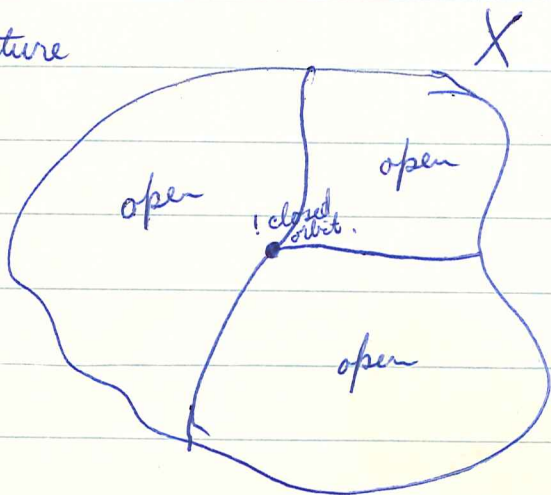 ture
X
open
open
! closed
orbit.
open